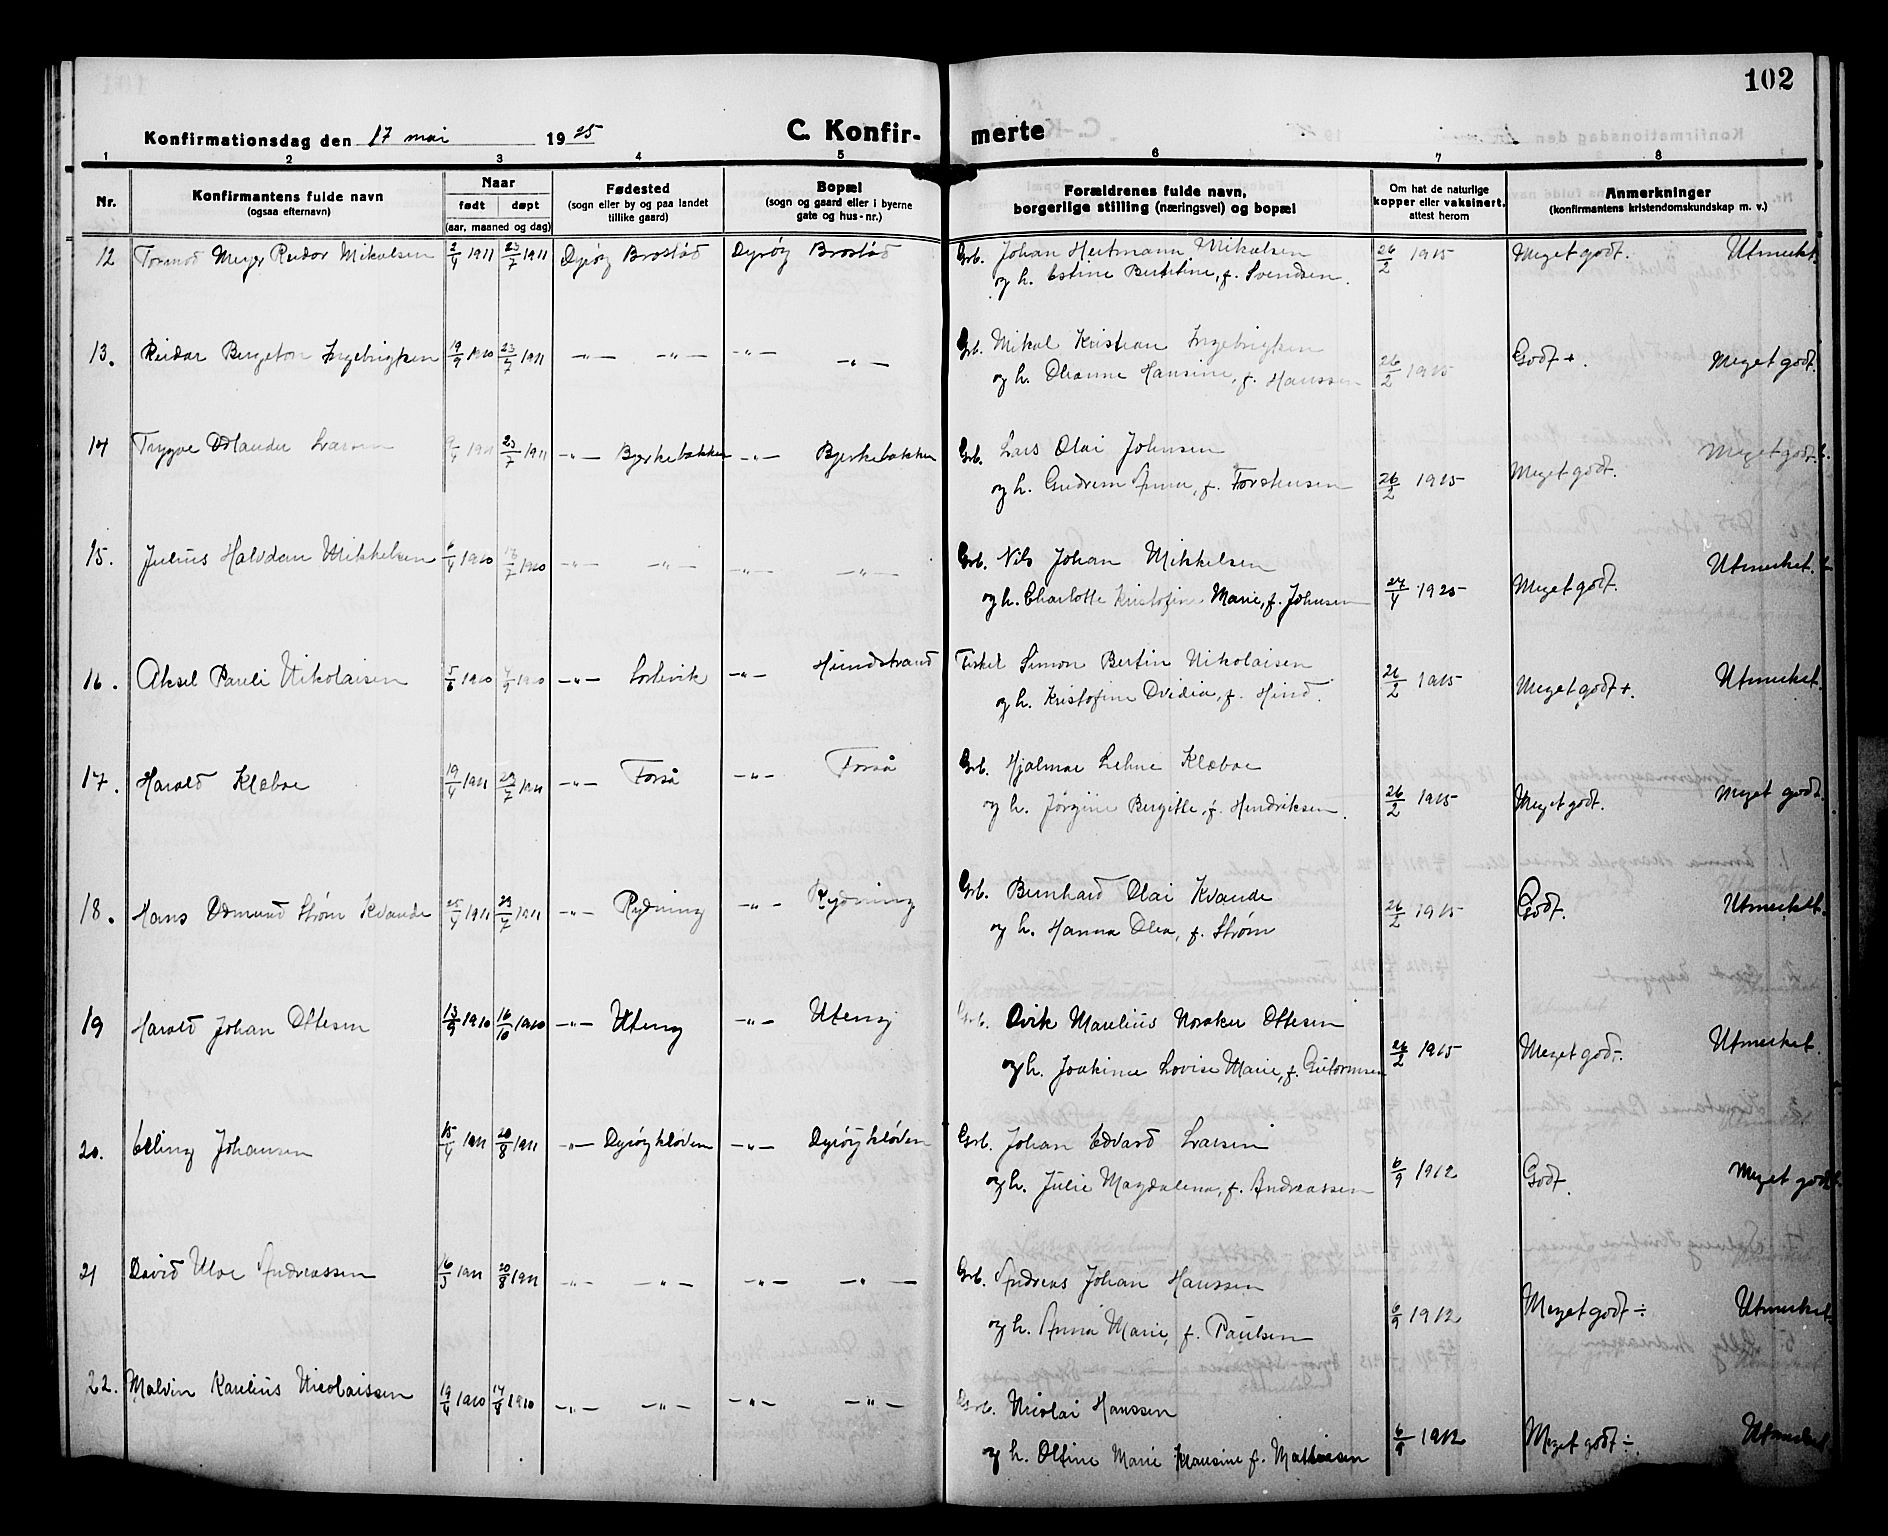 102
Konfirmationsdag den 17 mai 1925 C. Konfir- merte
1 2 3 4 5 6 7 8
Nr. Konfirmantens fulde navn (ogsaa efternavn) Naar født døpt (aar, maaned og dag) Fødested (sogn eller by og paa landet tillike gaard) Bopæl (sogn og gaard eller i byerne gate og hus-nr.) Forældrenes fulde navn, borgerlige stilling (næringsvei) og bopæl Om hat de naturlige kopper eller vaksinert, attest herom Anmerkninger (konfirmantens kristendomskundskap m. v.)
12 Tormod Meyer Reidar Mikalsen 2/4 1911 23/7 1911 Dyrøy Brøstad Dyrøy Brøstad Grb. Johan Heitmann Mikalsen 26/2 1915 Meget godt. Utmerket.
og h. Estine Bertine, f. Svendsen.
13. Reidar Bergeton Ingebrigtsen 19/9 1910 23/7 1911 -"- -"- -"- -"- Grb. Mikal Kristian Ingebrigtsen 26/2 1915 Godt +. Meget godt.
og h. Hansine, f. Hanssen
14 Trygve Larsen 1911 23/7 1911 -"- Bjerkebakken -"- Bjerkebakken Grb. Lars Olai Johnsen Meget godt.
og h. Anna, f. 26/2 1915 Meget godt.
15. Julius Halvdan Mikkelsen 6/4 1910 17/7 1910 -"- -"- -"- -"- Grb. Nils Johan Mikkelsen Utmerket.
og h. Charlotte Kristofine Marie, f. Johnsen 27/4 1925 Meget godt.
16. Aksel Pauli Nikolaisen 5/6 1910 4/9 1910 -"- -"- Hundstrand Fisker Simon Bertin Nikolaisen 26/2 1915 Meget godt +. Utmerket.
og h. Kristofine Ovidia, f. Hind.
17. Harald Klæboe 19/4 1911 23/7 1911 -"- Forså -"- Forså Grb. Hjalmar Lehne Klæboe
og h. Jørgine Bergitte, f. Hendriksen. 26/2 1915 Meget godt. Meget godt.
18. Hans Osmund Strøm Kvande 25/4 1911 23/7 1911 -"- Rydning -"- Rydning Grb. Bernhard Olai Kvande 26/2 1915 Godt. Utmerket.
og h. Hanna Olea, f. Strøm
19 Harald Johan Ottesen 13/9 1910 16/10 1910 -"- Uteng -"- Uteng Grb. Marelius Ottesen
og h. Joakime Lovise Marie, f. Guttormsen 26/2 1915 Meget godt. Utmerket.
20. Erling Johansen 15/4 1911 20/8 1911 -"- Dyrøykløven -"- Dyrøykløven Grb. Johan Edvard Larsen
og h. Julie Magdalena, f. Andreassen 6/9 1912 Godt. Meget godt.
21 David Andreassen 16/3 1911 20/8 1911 -"- -"- -"- -"- Grb. Andreas Johan Hanssen
og h. Anna Marie, f. Paulsen 6/9 1912 Meget godt ÷ Utmerket.
22. Malvin Karelius Nicolaissen 19/4 1910 14/8 1910 -"- -"- -"- -"- Grb. Nicolai Hanssen
og h. Oltine Marie Klausine f. Mathisen 6/9 1912 Meget godt ÷. Utmerket.